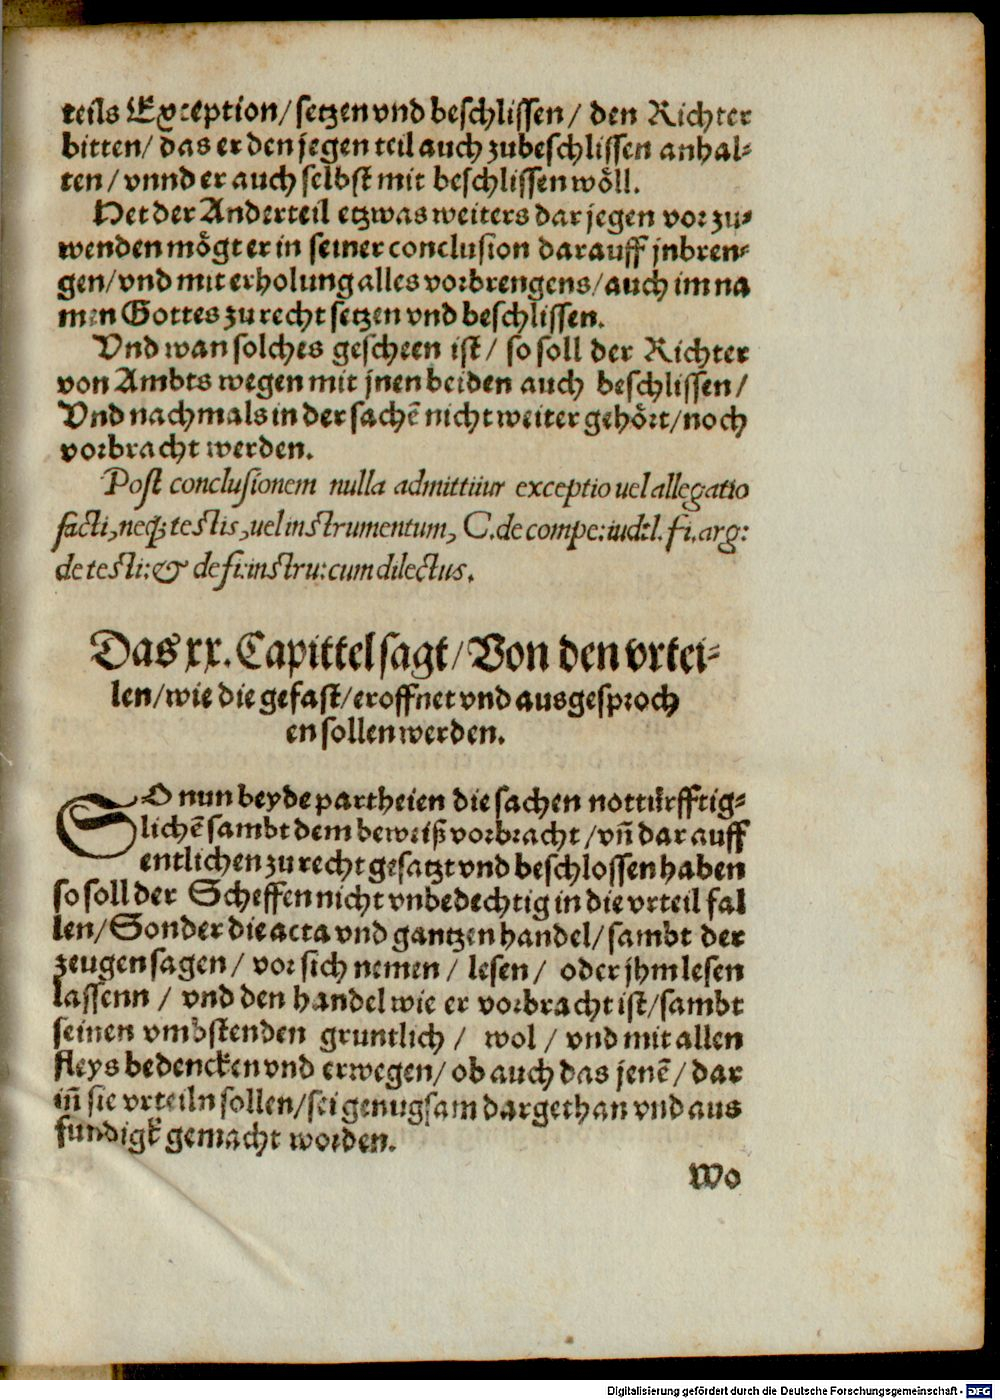 teils Exception/ setzen vnd beschlissen/ den Richter
bitten/ das er den jegen teil auch zubeschlissen anhal⸗
ten/ vnnd er auch selbst mit beschlissen wöll.
Het der Anderteil etzwas weiters dar jegen vor zu⸗
wenden mögt er in seiner conclusion darauff jnbren⸗
gen/ vnd mit erholung alles vorbrengens/ auch im na
men Gottes zu recht setzen vnd beschlissen.
Vnd wan solches gescheen ist/ so soll der Richter
von Ambts wegen mit jnen beiden auch beschlissen/
Vnd nachmals in der sachē nicht weiter gehört/ noch
vorbracht werden.
Post conclusionem nulla admittitur exceptio uel allegatio
facti, neq; testis, uel instrumentum, C. de compe: iud: l. fi. arg:
de testi: & de fi: instru: cum dilectus.
Das xx. Capittel sagt/ Von den vrtei⸗
len/ wie die gefast/ eroffnet vnd ausgesproch
en sollen werden.
SO nun beyde partheien die sachen nottürfftig⸗
lichē sambt dem beweiß vorbracht/ vñ dar auff
entlichen zu recht gesatzt vnd beschlossen haben
so soll der Scheffen nicht vnbedechtig in die vrteil fal
len/ Sonder die acta vnd gantzen handel/ sambt der
zeugen sagen/ vor sich nemen/ lesen/ oder jhm lesen
lassenn/ vnd den handel wie er vorbracht ist/ sambt
seinen vmbstenden gruntlich/ wol/ vnd mit allen
fleys bedencken vnd erwegen/ ob auch das jenē/ dar
iñ sie vrteiln sollen/ sei genugsam dargethan vnd aus
fundigk gemacht worden.
Wo
Digitalisierung gefördert durch die Deutsche Forschungsgemeinschaft - DFG